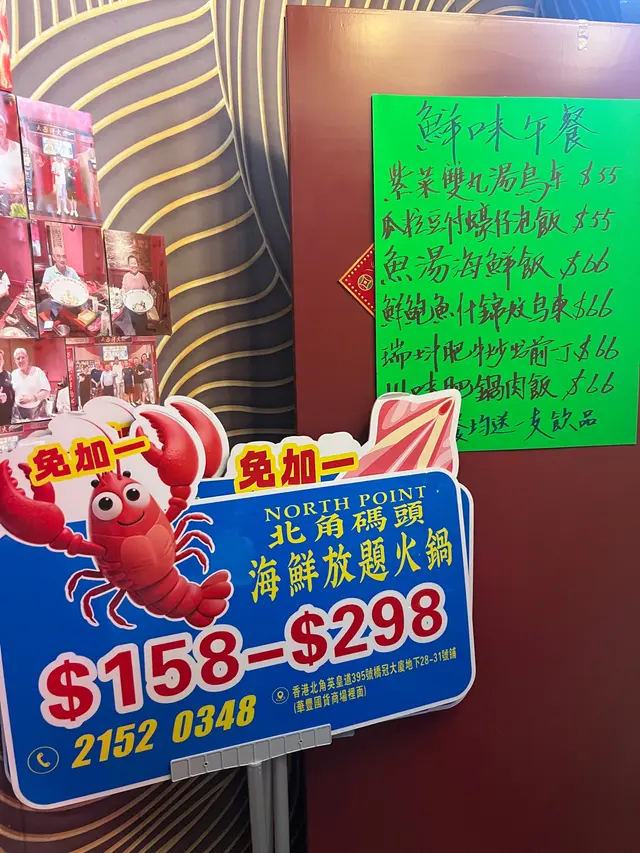 鮮味午餐
紫菜雙丸湯烏冬 $55
瓜粒豆付蠔仔泡飯 $55
魚湯海鮮飯 $66
鮮鮑魚什錦炆烏東 $66
瑞士汁肥牛炒出前一丁 $66
川味回鍋肉飯 $66
均送一支飲品
免加一
免加一
NORTH POINT
北角碼頭
海鮮放題火鍋
$158-$298
2152 0348
香港北角英皇道395號僑冠大廈地下28-31號鋪
(華豐國貨商場裡面)